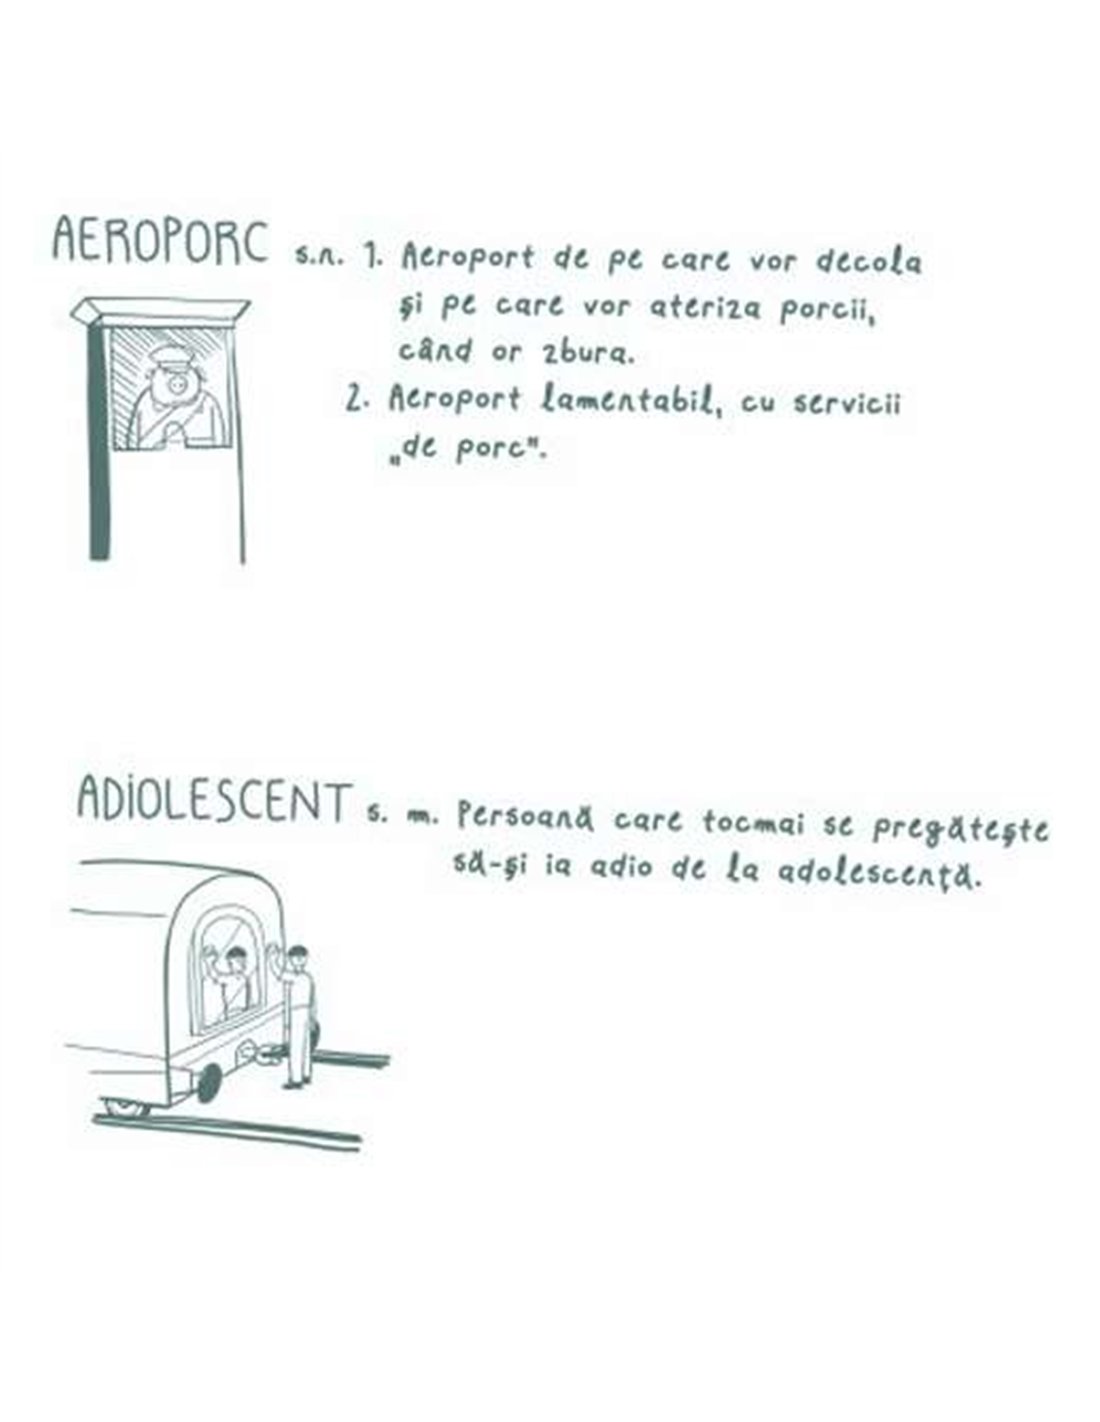 AEROPORC s.n. 1. Aeroport de pe care vor decola
şi pe care vor ateriza porcii,
când or zbura.
2. Aeroport lamentabil, cu servicii
„de porc".
ADiOLESCENT s. m. Persoană care tocmai se pregăteşte
să-şi ia adio de la adolescenţă.